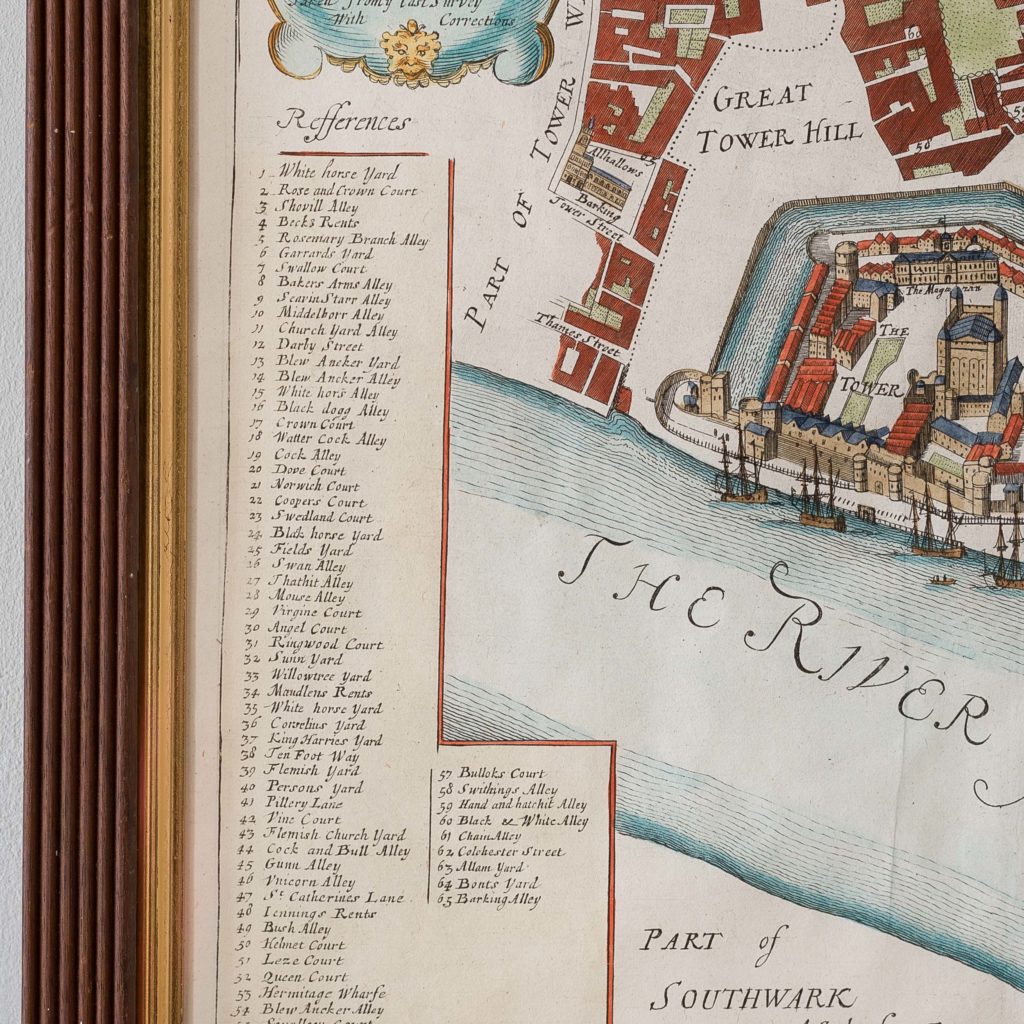 Taken from y last Survey
With Corrections
Refferences
1 White horse Yard
2 Rose and Crown Court
3 Shovill Alley
4 Becks Rents
5 Rosemary Branch Alley
6 Garrards Yard
7 Swallow Court
8 Bakers Arms Alley
9 Seavin Starr Alley
10 Middelborr Alley
11 Church Yard Alley
12 Darby Street
13 Blew Ancker Yard
14 Blew Ancker Alley
15 White hors Alley
16 Black dogg Alley
17 Crown Court
18 Watter Cock Alley
19 Cock Alley
20 Dove Court
21 Norwich Court
22 Coopers Court
23 Swedland Court
24 Blak horse Yard
25 Fields Yard
26 Swan Alley
27 Thathit Alley
28 Mouse Alley
29 Virgine Court
30 Angel Court
31 Ringwood Court
32 Sunn Yard
33 Willowtree Yard
34 Maudlens Rents
35 White horse Yard
36 Cornelius Yard
37 King Harries Yard
38 Ten Foot Way
39 Flemish Yard
40 Persons Yard
41 Pillery Lane
42 Vine Court
43 Flemish Church Yard
44 Cock and Bull Alley
45 Gunn Alley
46 Vnicorn Alley
47 St Catherines Lane
48 Iennings Rents
49 Bush Alley
50 Helmet Court
51 Leze Court
52 Queen Court
53 Hermitage Wharfe
54 Blew Ancker Alley
57 Bulloks Court
58 Swithings Alley
59 Hand and hatchit Alley
60 Black & White Alley
61 Chain Alley
62 Colchester Street
63 Allam Yard
64 Bonts Yard
65 Barking Alley
PART OF TOWER W
GREAT
TOWER HILL
60
58
63
Allhallows
Barking
Tower Street
Thames Street
The Magazin
THE
TOWER
THE RIVER
PART of
SOUTHWARK